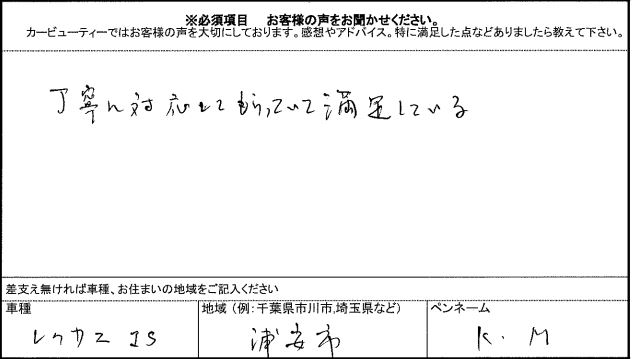 ※必須項目 お客様の声をお聞かせください。
カービューティーではお客様の声を大切にしております。感想やアドバイス。特に満足した点などありましたら教えて下さい。
丁寧に対応してもらっていて満足している
差支え無ければ車種、お住まいの地域をご記入ください
車種 地域 (例:千葉県市川市,埼玉県など) ペンネーム
レクサス IS 浦安市 K.M